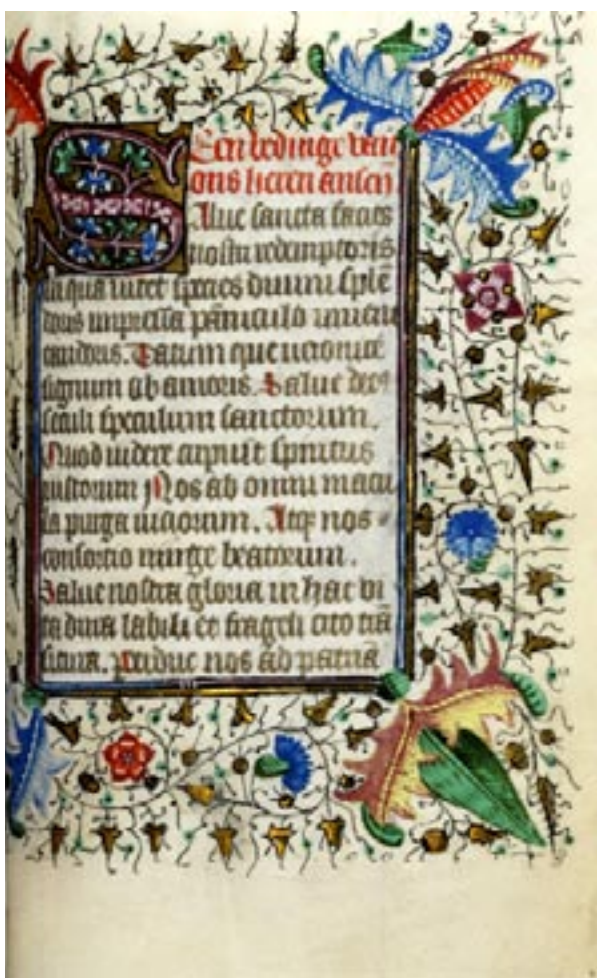 Een bedinge van
ons heren ansci̅
SAlue sancta facies
nostri redemptoris
In qua nitet species diuini sple̅
doris impressa pa̅niculo niuei
candoris. Datum que ueronice
signum ob amoris. Salue decꝰ
seculi speculum sanctorum.
Quod uidere cupiut spiritus
iustorum Nos ab omni macu
la purga uiciorum. Atqꝫ nos
consortio iunge beatorum.
Salue nostra gloria in hac vi
ta dura labili et fragili cito tra̅
situra. Perduc nos ad patria̅